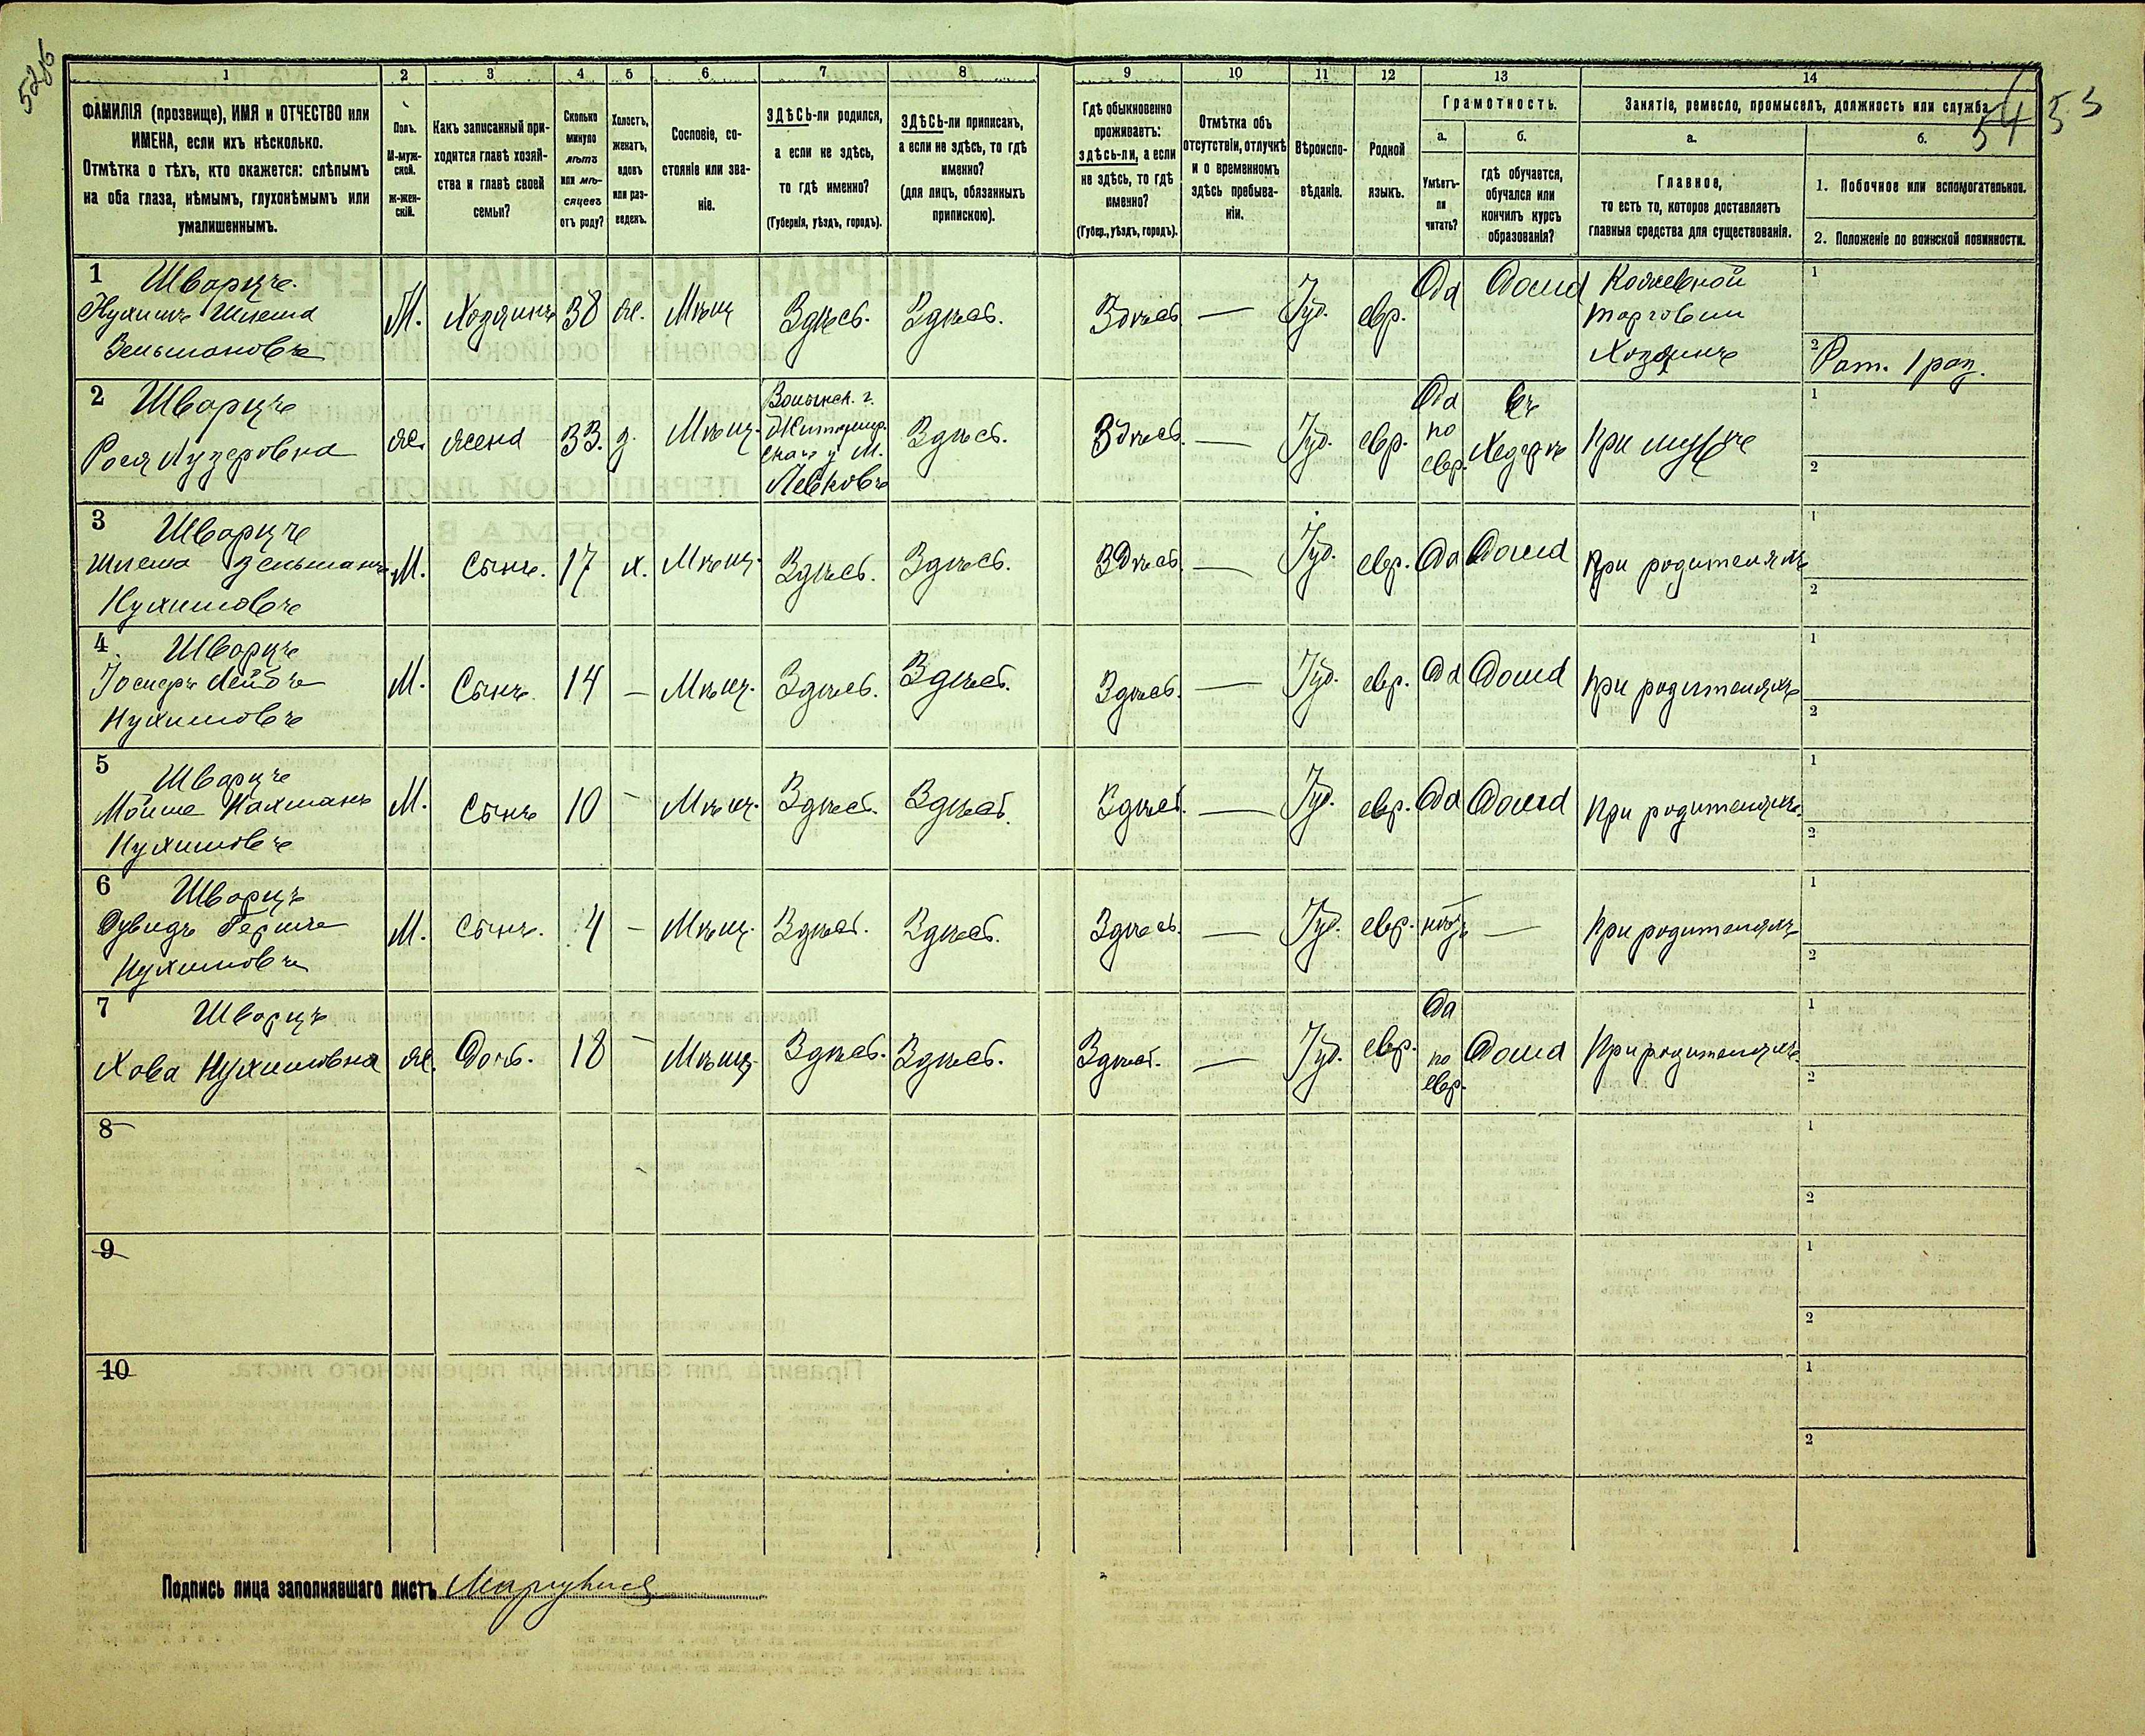 5286
54 53
1 2 3 4 5 6 7 8 9 10 11 12 13 14
ФАМИЛІЯ (прозвище), ИМЯ и ОТЧЕСТВО или
ИМЕНА, если ихъ нѣсколько.
Отмѣтка о тѣхъ, кто окажется: слѣпымъ
на оба глаза, нѣмымъ, глухонѣмымъ или
умалишеннымъ.
Полъ.
М-муж-
ской.
Ж-жен-
скій.
Какъ записанный при-
ходится главѣ хозяй-
ства и главѣ своей
семьи?
Сколько
минуло
лѣтъ
или мѣ-
сяцевъ
отъ роду?
Холостъ,
женатъ,
вдовъ
или раз-
веденъ.
Сословіе, со-
стояніе или зва-
ніе.
ЗДѢСЬ-ли родился,
а если не здѣсь,
то гдѣ именно?
(Губернія, уѣздъ, городъ).
ЗДѢСЬ-ли приписанъ,
а если не здѣсь, то гдѣ
именно?
(для лицъ, обязанныхъ
припискою).
Гдѣ обыкновенно
проживаетъ:
здѣсь-ли, а если
не здѣсь, то гдѣ
именно?
(Губер., уѣздъ, городъ).
Отмѣтка объ
отсутствіи, отлучкѣ
и о временномъ
здѣсь пребыва-
ніи.
Вѣроиспо-
вѣданіе.
Родной
языкъ.
Грамотность.
а.
Умѣетъ-
ли
читать?
б.
гдѣ обучается,
обучался или
кончилъ курсъ
образованія?
Занятіе, ремесло, промыселъ, должность или служба
а.
Главное,
то есть то, которое доставляетъ
главныя средства для существованія.
б.
1. Побочное или вспомогательное.
2. Положеніе по воинской повинности.
1 Шварцъ
Нухимъ Шлема
Зельмановъ
М. Хозяинъ 38 ж. Мѣщ. Здѣсь. Здѣсь. Здѣсь. — Іуд. евр. Да Дома
Кожевной
торговли
Хозяинъ
1
2 Рат. 1 раз.
2 Шварцъ
Рося Лузеровна
Ж. жена 33. з. Мѣщ.
Волынск. г.
Житомир-
скаго у. М.
Левковъ
Здѣсь. Здѣсь. — Іуд. евр.
Да
по
евр.
въ
Хедерѣ
При мужѣ
1
2
3 Шварцъ
Шлема Зельманъ
Нухимовъ
М. Сынъ. 17 х. Мѣщ. Здѣсь. Здѣсь. Здѣсь. — Іуд. евр. Да Дома При родителяхъ
1
2
4 Шварцъ
Іосифъ Лейбъ
Нухимовъ
М. Сынъ. 14 — Мѣщ. Здѣсь. Здѣсь. Здѣсь. — Іуд. евр. Да Дома При родителяхъ
1
2
5 Шварцъ
Мойше Нахманъ
Нухимовъ
М. Сынъ 10 - Мѣщ. Здѣсь. Здѣсь. Здѣсь. — Іуд. евр. Да Дома При родителяхъ.
1
2
6 Шварцъ
Дувидъ Гершъ
Нухимовъ
М. Сынъ. 4 — Мѣщ. Здѣсь. Здѣсь. Здѣсь. — Іуд. евр. нѣтъ — При родителяхъ
1
2
7 Шварцъ
Хова Нухимовна
Ж. Дочь. 18 - Мѣщ. Здѣсь. Здѣсь. Здѣсь. — Іуд. евр.
Да
по
евр.
Дома При родителяхъ
1
2
8
1
2
9
1
2
10
1
2
Подпись лица заполнявшаго листъ